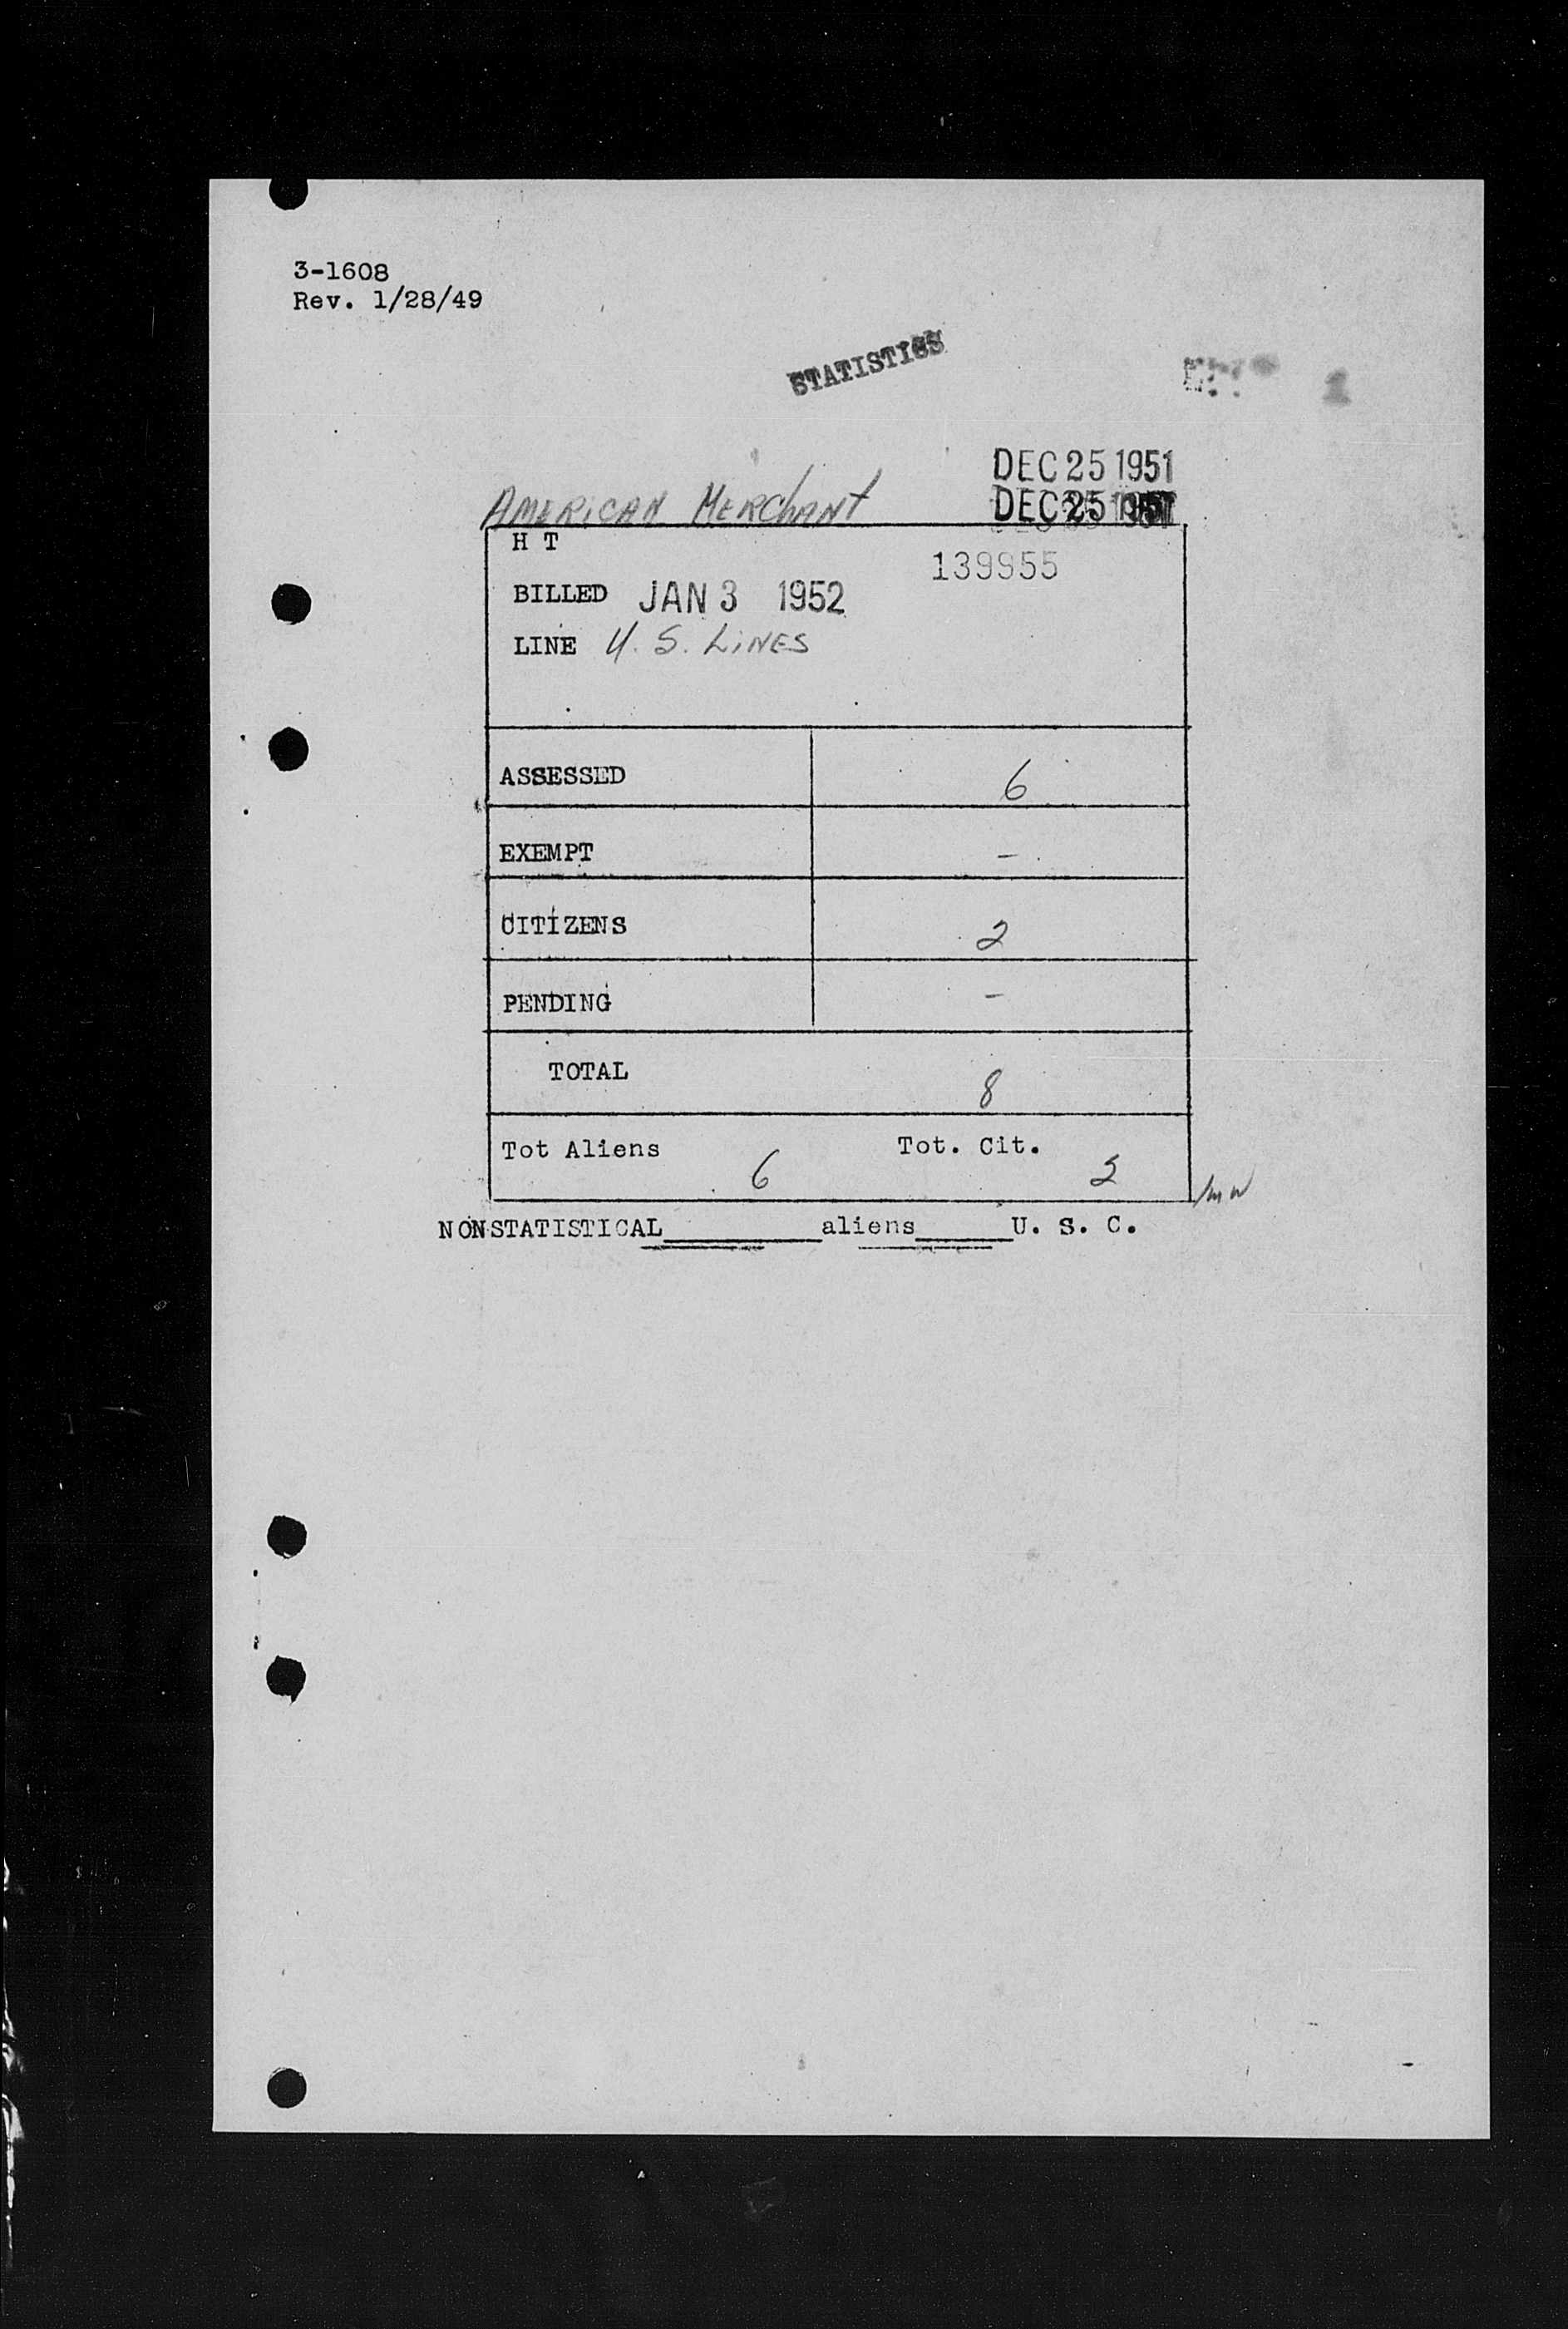 3-1608
Rev. 1/28/49
STATISTICS
DEC 25 1951
AMERICAN MERCHANT DEC 25 1951
H T
139955
BILLED JAN 3 1952
LINE U. S. LINES
ASSESSED 6
EXEMPT –
CITIZENS 2
PENDING –
TOTAL 8
Tot Aliens 6 Tot. Cit. 2
/mw
NONSTATISTICAL__________aliens______U. S. C.